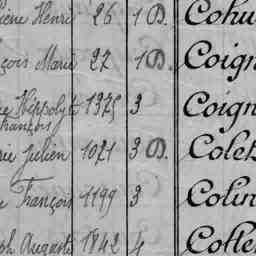 Henri 26 1 D. Cohu
Marie 27 1 D. Coign
Hippolyte 1375 3 Coign
François
Julien 1071 3 D. Colet
François 1199 3 Colin
Auguste 1842 4